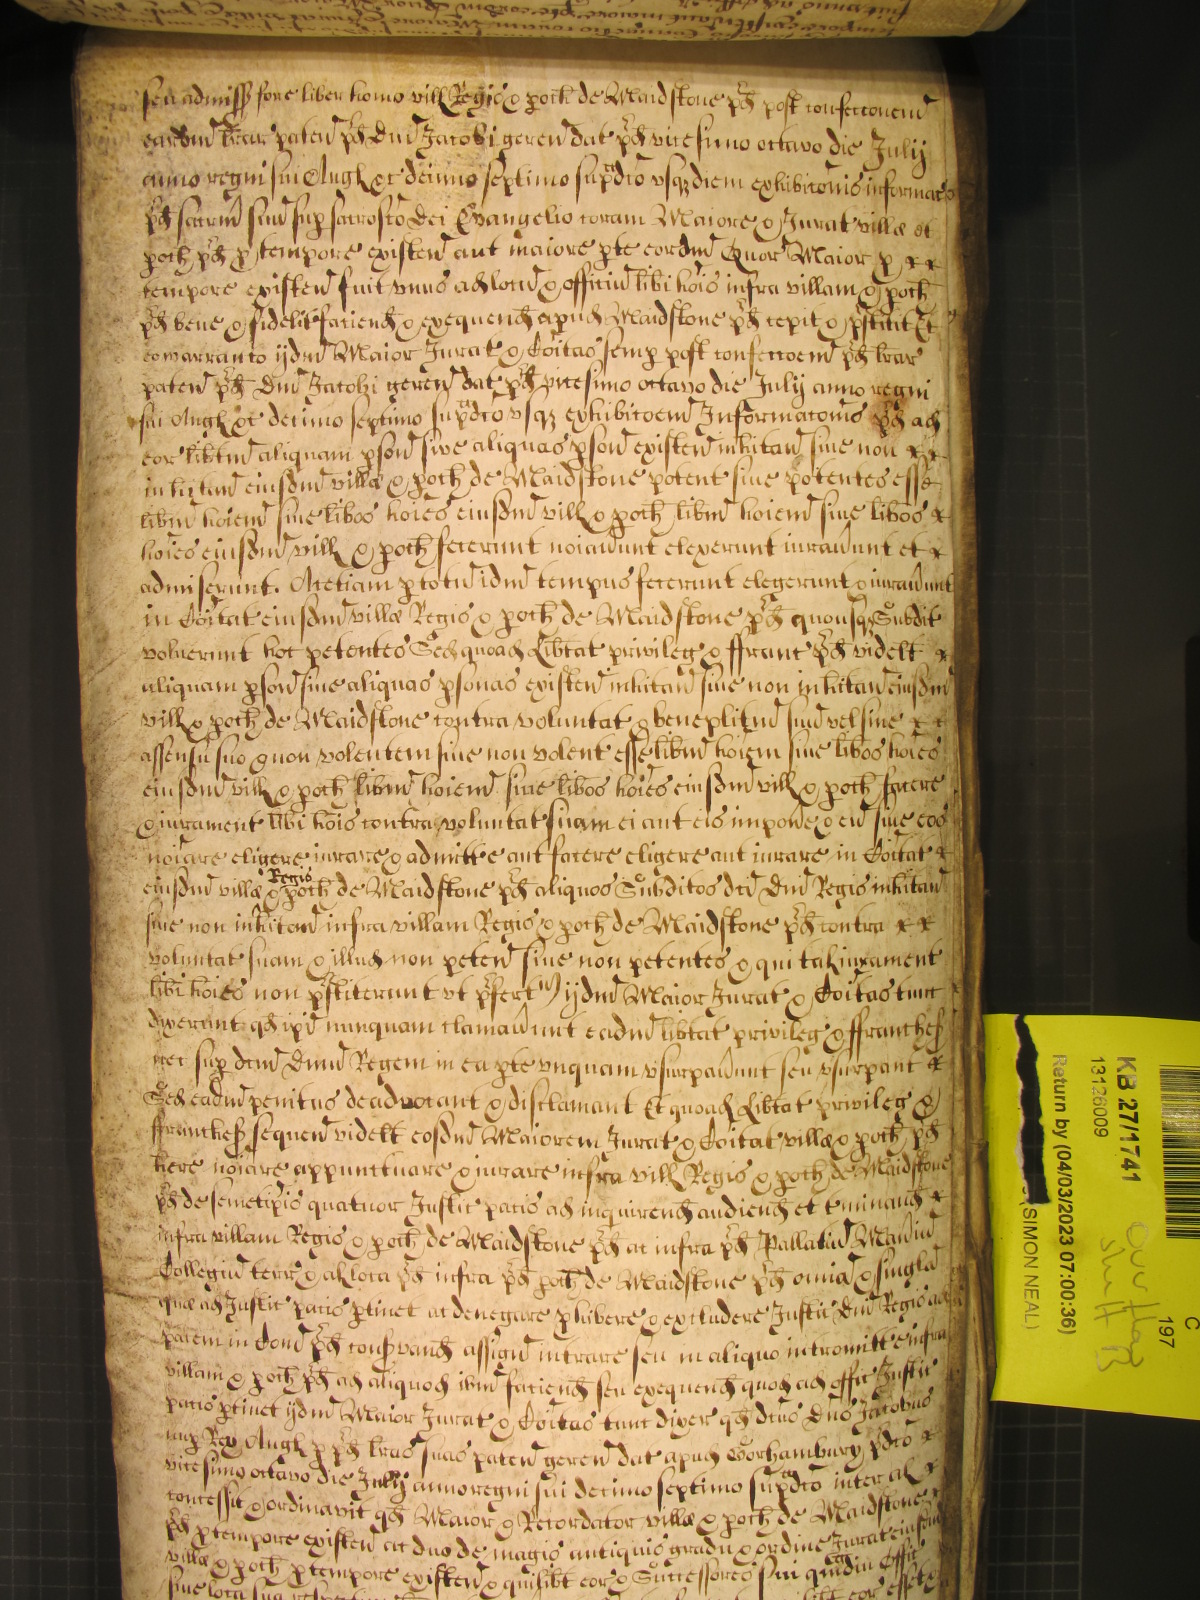 seu admiss fore liber homo vill Regis & poch de Maidstone pd post confeccionem
earundem lrar paten pd Dni Jacobi geren dat pd vicesimo octavo die Julij
anno regni sui Angl &c decimo septimo supradco usq diem exhibitionis informac
pd sacrm suu sup sacrosco Dei Evangelio coram Maiore & Jurat villæ et
poch pd p tempore existen aut maiore pte eordm Quor Maior p
tempore existen fuit unus ad locu & officiu libi hois infra villam & poch
pd bene & fidelit faciend & exequend apud Maidstone pd cepit & pstitit Et
eo warranto ijdm Maior Jurat & Coitas semp post confeccoem pd lrar
paten pd Dni Jacobi geren dat pd vicesimo octavo die July anno regni
sui Angl &c decimo septimo supradco usq exhibicoem Informacionis pd ad
eor libitm aliquam pson sive aliquas pson existen inhitan sive non
inhitan eiusdm villæ & poch de Maidstone potent sive potentes esse
libm hoiem sive libos hoies eiusdm vill & poch libm hoiem sive libos
hoies eiusdm vill & poch fecerunt noiaverunt elexerunt iuraverunt et
admiserunt. Acetiam p totu idm tempus fecerunt elegerunt & iuraverunt
in Coitat eiusdm villæ Regis & poch de Maidstone pd quousq Subdit
voluerunt hoc petentes Sed quoad Libtat privileg & ffranc pd videlt
aliquam pson sive aliquas psonas existen inhitan sive non inhitan eiusdm
vill & poch de Maidstone contra voluntat & beneplitm suu vel sine
assensu suo & non volentem sive non volent esse libm hoiem sive libos hoies
eiusdm vill & poch libm hoiem sive libos hoies eiusdm vill & poch facere
& iurament libi hois contra voluntat suam ei aut eis imponere & eu sive eos
noiare eligere iurare & admitte aut facere eligere aut iurare in Coitat
eiusdm villæ Regis & poch de Maidstone pd aliquos Subditos dci Dni Regis inhitan
sive non inhitan infra villam Regis & poch de Maidstone pd contra
voluntat suam & illud non peten sive non petentes & qui tal iurament
libi hoies non pstiterunt ut pfert ijdm Maior Jurat & Coitas tunc
dixerunt qd ipi nunquam clamaverunt eadm libtat privileg & ffranches
nec sup dcm Dnm Regem in ea pte unquam usurpaverunt seu usurpant
Sed eadm penitus deadvocant & disclamant Et quoad Libtat privileg &
ffranches sequen videlt eosdm Maiorem Jurat & Coitat villæ & poch pd
here noiare appunctuare & iurare infra vill Regis & poch de Maidstone
pd de semetipis quatuor Justic pacis ad inquirend audiend et terminand
infra villam Regis & poch de Maidstone pd ac infra pd Pallatiu Maneriu
Collegiu terr & al loca pd infra pd poch de Maidstone pd omia & singla
quæ ad Justic pacis ptinet ac denegare phibere & excludere Justic Dni Regis ad
pacem in Com pd conservand assign intrare seu in aliquo intromitte infra
villam & poch pd ad aliquod ibm faciend seu exequend quod ad offic Justic
pacis ptinet ijdm Maior Jurat & Coitas tunc dixer qd dcus Dns Jacobus
nup Rex Angl p pd lras suas paten geren dat apud Gorhambury pdco
vicesimo octavo die July anno regni sui decimo septimo supradco inter al
concessit & ordinavit qd Maior & Recordator villæ & poch de Maidstone
pd p tempore existen ac duo de magis antiquis gradu & ordine Jurat eiusdm
villæ & poch p tempore existen & quilibt eor & Successores sui
KB 27/1741
13126009
Return by (04/03/2023 07:00:36)
(SIMON NEAL)
C
197